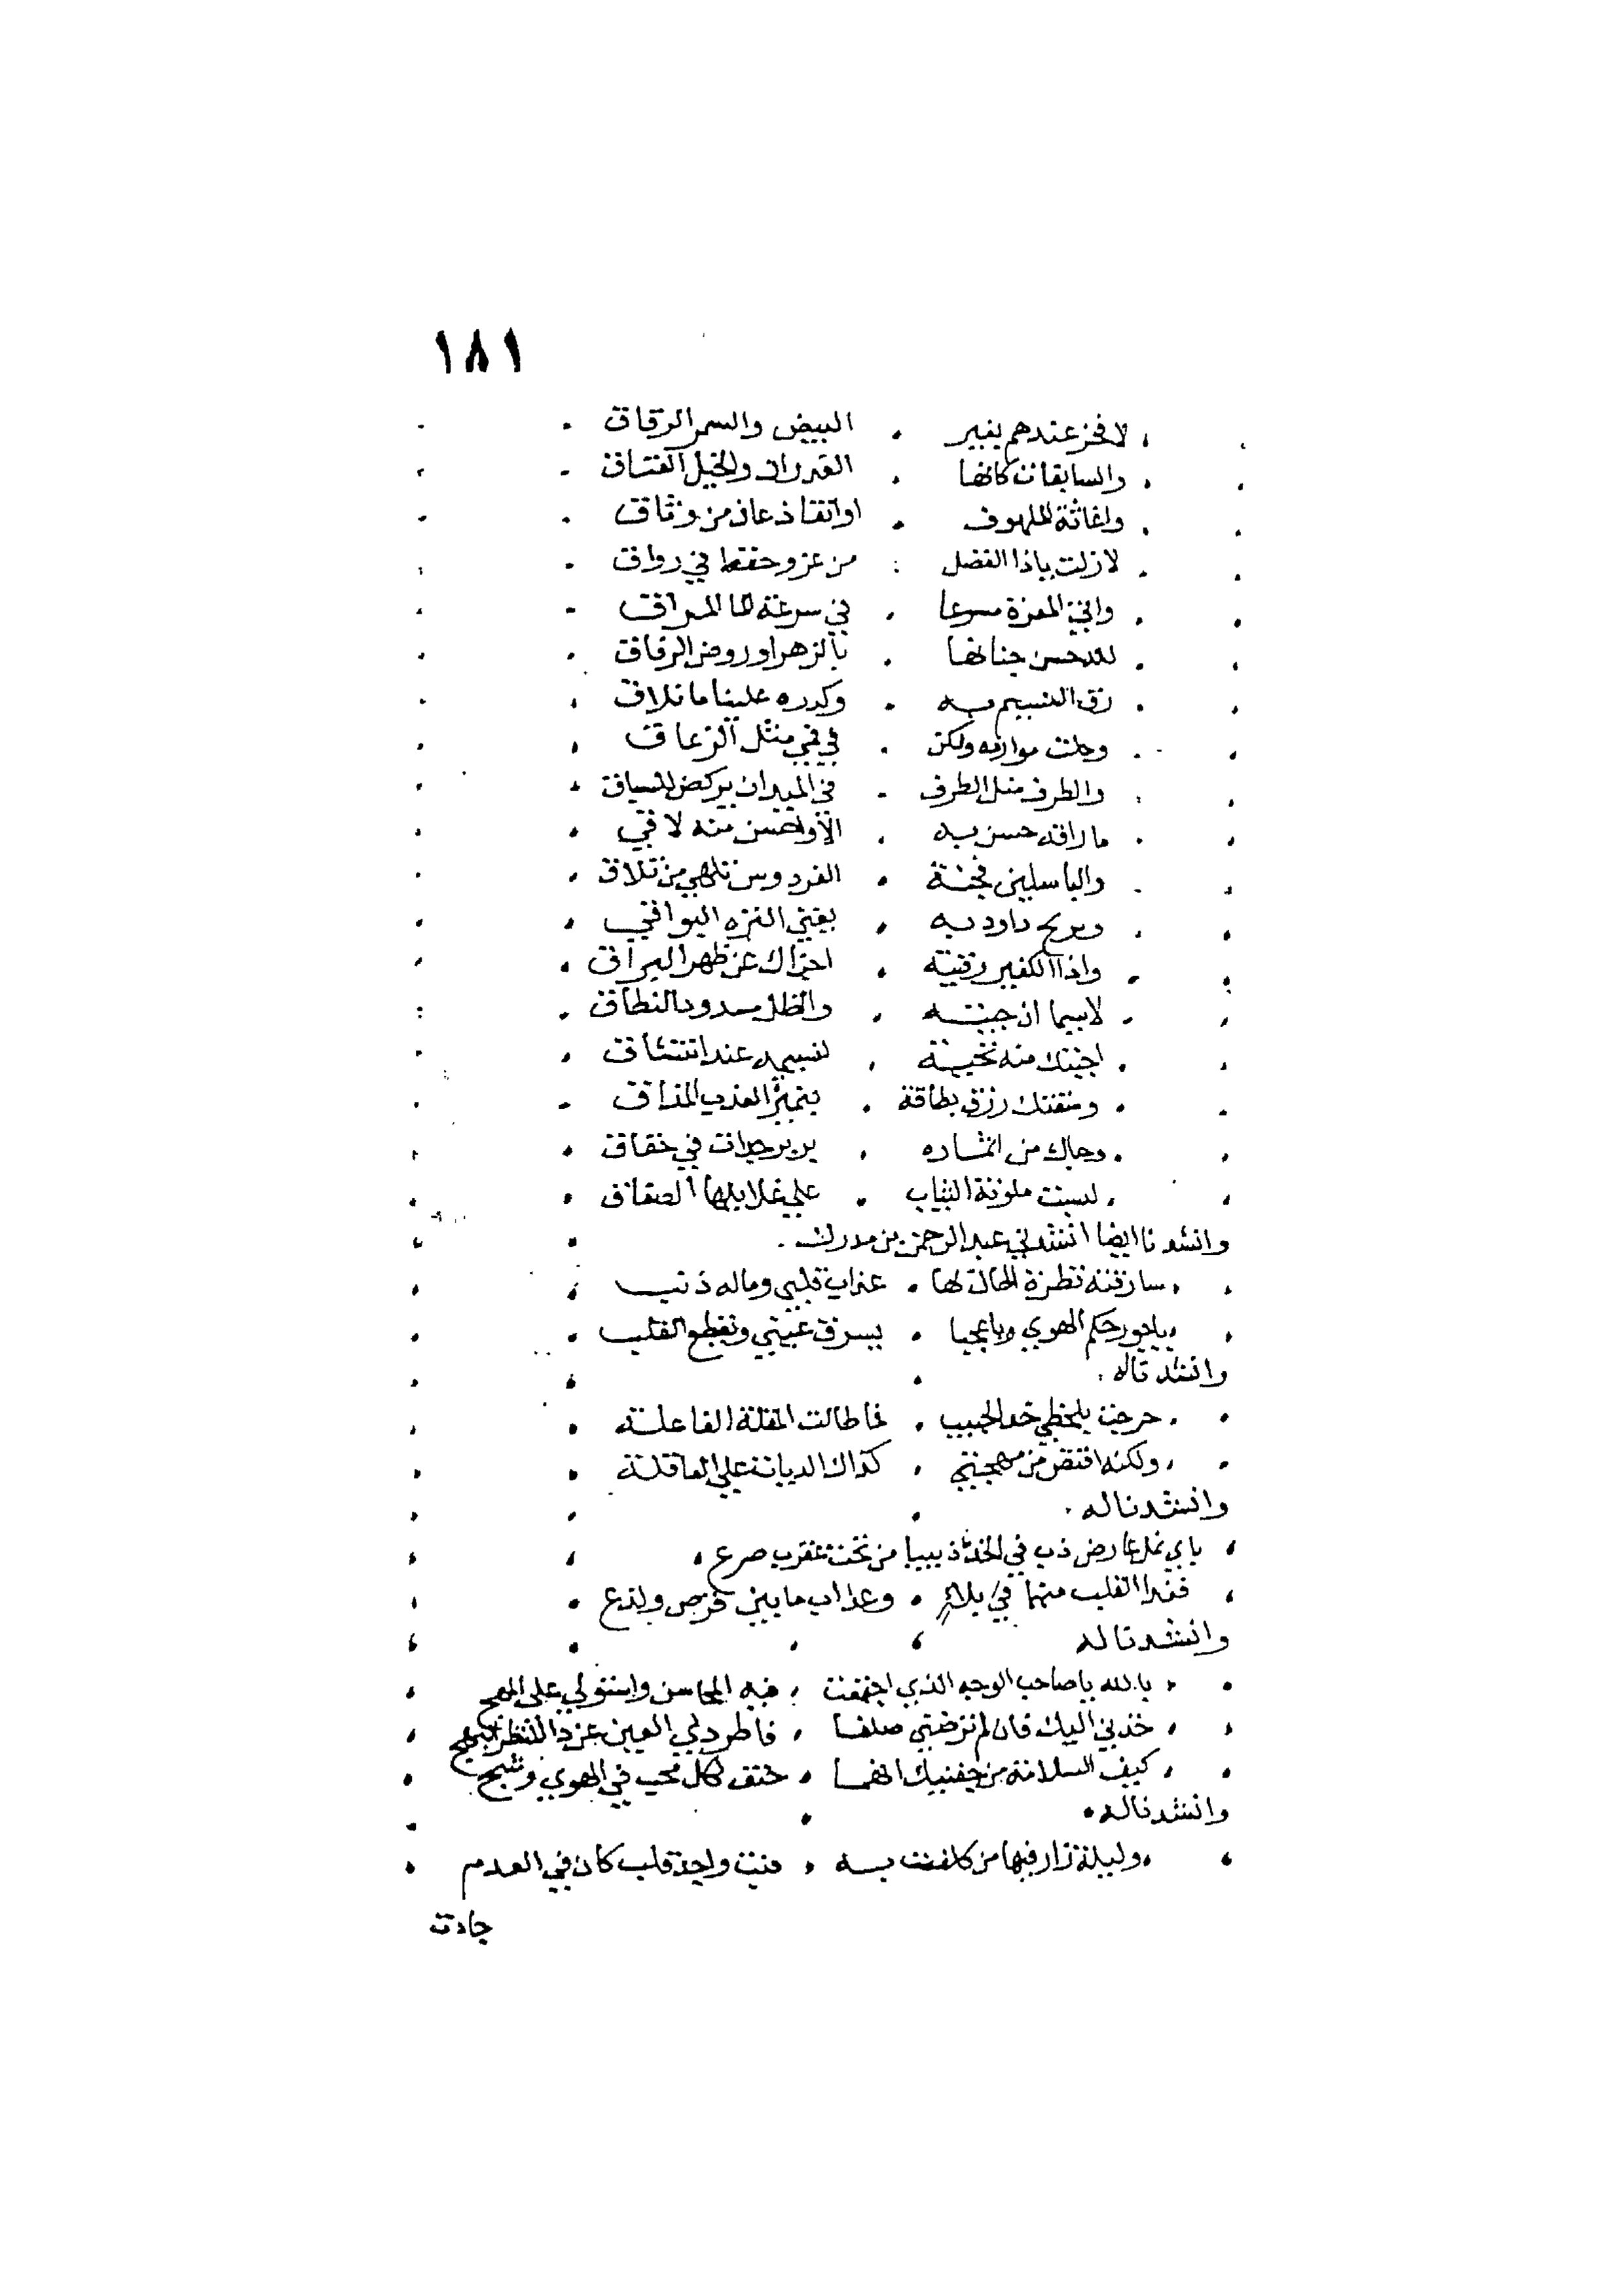 ١٨١
لا فخر عندهم بغير البيض والسمر الرقاق
والسابقات كانها الغدران والخيل العتاق
واغاثة الملهوف او انقاذ عان من وثاق
لا زلت ياذا الفضل من عز وحفظ في رواق
وافي المعزة مسرعا في سرعة الماء المراق
لله حسن جنانها بالزهر او روض الرقاق
رق النسيم به وكدره علينا ما نلاق
وحلت موارده ولكن في فمي مثل الزعاق
والطرف مثل الطرف في الميدان يركض للسباق
ما راقه حسن به الا واحسن منه لاقي
والباسلين فجنة الفردوس تلهي من تلاق
وبرج داود به بقيتي النزه البواقي
واذا الكفير رقيته اجزاك عن ظهر البراق
لا سيما ان جيته والظل ممدود النطاق
اجنتك منه نخيلة لنسيمه عند انتشاق
وسقتك رزق بطاقة بنمير العذب المذاق
وحباك من اثماره بزبرجدات في حقاق
لبست ملونة الثياب علي غلايلها الصفاق
وانشدنا ايضا انشدني عبد الرحمن بن مدرك
سارقته نظرة اطال لها عذاب قلبي وماله ذنب
ياجور حكم الهوي وياعجبا يسرق عيني ويقطع القلب
وانشدنا له
جرحت بلحظي خد الحبيب فما طالت المقلة الفاعلة
ولكنه اقتص من مهجتي كذاك الديات علي العاقلة
وانشدنا له
يا بي نمل عارض ذب في الخد ذبيبا من تحت عقرب صدغ
فغدا القلب منهما في بلاء وعذاب ما بين قرص ولدغ
وانشدنا له
بالله يا صاحب الوجه الذي اجتمعت فيه المحاسن واستولي علي المهج
خذني اليك فان لم ترضني صلفا فاطرد بي العين عن ذا المنظر البهج
كيف السلامة من جفنيك انهما حتف لكل محب في الهوي وشج
وانشدنا له
وليلة زار فيها من كلفت به فبت واجد قلب كان في العدم
جادت